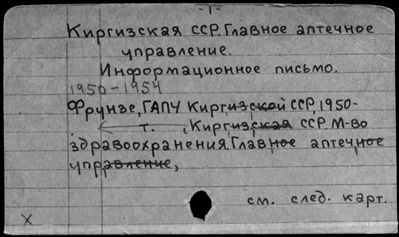 -1-
Киргизская ССР. Главное аптечное
управление.
Информационное письмо.
1950-1954
Фрунзе, ГАПУ Киргизской ССР, 1950-
т. , Киргизская ССР. М-во
здравоохранения. Главное аптечное
управление,
см. след. карт.
X